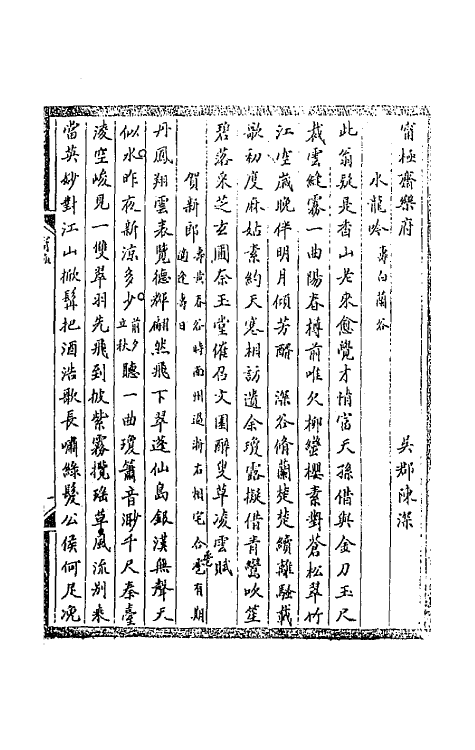 甯極齋樂府　吳郡陳深
水龍吟 壽白蘭谷
此翁疑是香山老來愈覺才情富天孫借與金刀玉尺
裁雲縫霧一曲陽春樽前唯欠柳蠻櫻素對蒼松翠竹
江空歲晚伴明月傾芳醑　深谷脩蘭楚楚續離騷載
歌初度麻姑素約天寒相訪遺余瓊露擬借青鸞吹笙
碧落采芝玄圃奈玉堂催召文園醉叟草凌雲賦
賀新郎 壽黄春谷時南州過浙右相宅合巹有期適逢壽日
丹鳳翔雲表覽德輝翩然飛下翠蓬仙島銀漢無聲天
似水昨夜新涼多少 前夕立秋 聽一曲瓊簫音渺千尺秦臺
淩空峻見一雙翠羽先飛到披紫霧攬瑶草　風流別乘
當英妙對江山掀髯把酒浩歌長嘯綠髮公侯何足况